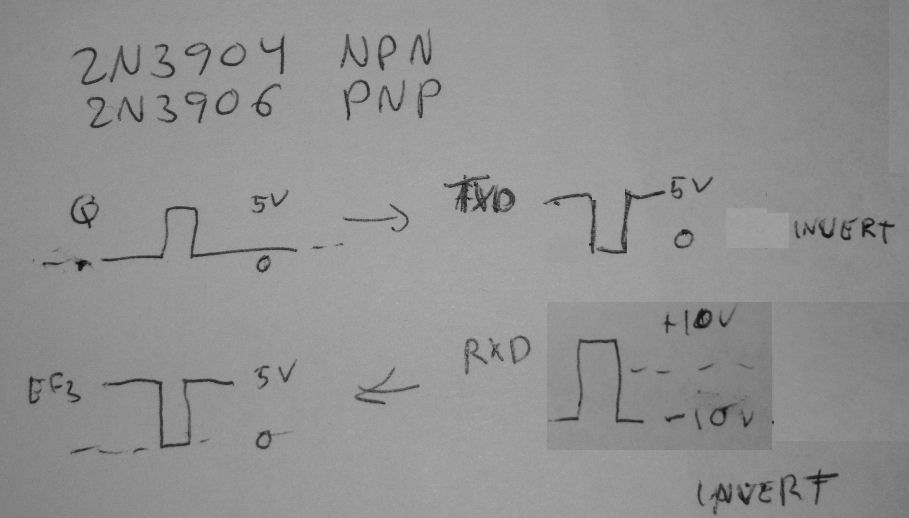 2N3904 NPN
2N3906 PNP
Q 5V TXD 5V
0 0 INVERT
RXD +10V
EF3 5V -10V
0
INVERT